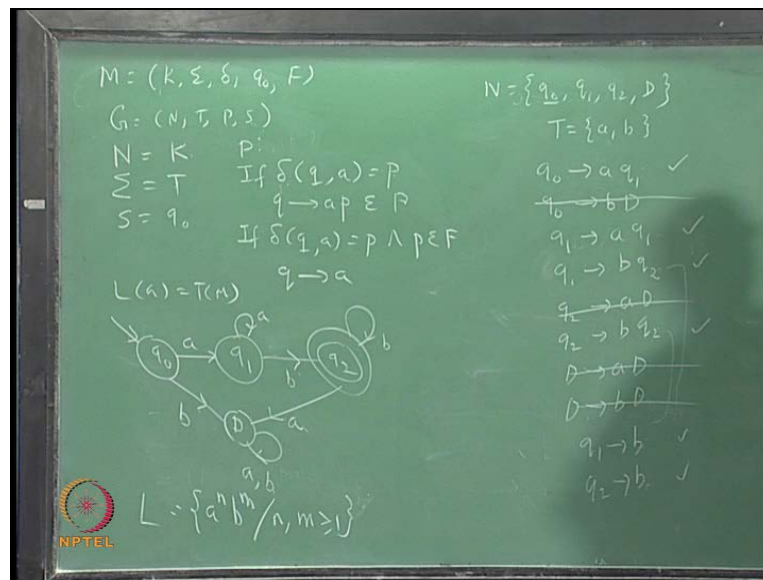 M = (K, Σ, δ, q₀, F)
G = (N, T, P, S)
N = K P:
Σ = T If δ(q, a) = p
S = q₀ q → a p ε P
If δ(q, a) = p ∧ p ε F
q → a
L(G) = T(M)
q₀ a q₁ a b q₂ b
b D a
a, b
L = {aⁿ bᵐ / n, m ≥ 1}
NPTEL
N = {q₀, q₁, q₂, D}
T = {a, b}
q₀ → a q₁ ✓
q₀ → b D
q₁ → a q₁ ✓
q₁ → b q₂ ✓
q₂ → a D
q₂ → b q₂ ✓
D → a D
D → b D
q₁ → b ✓
q₂ → b ✓